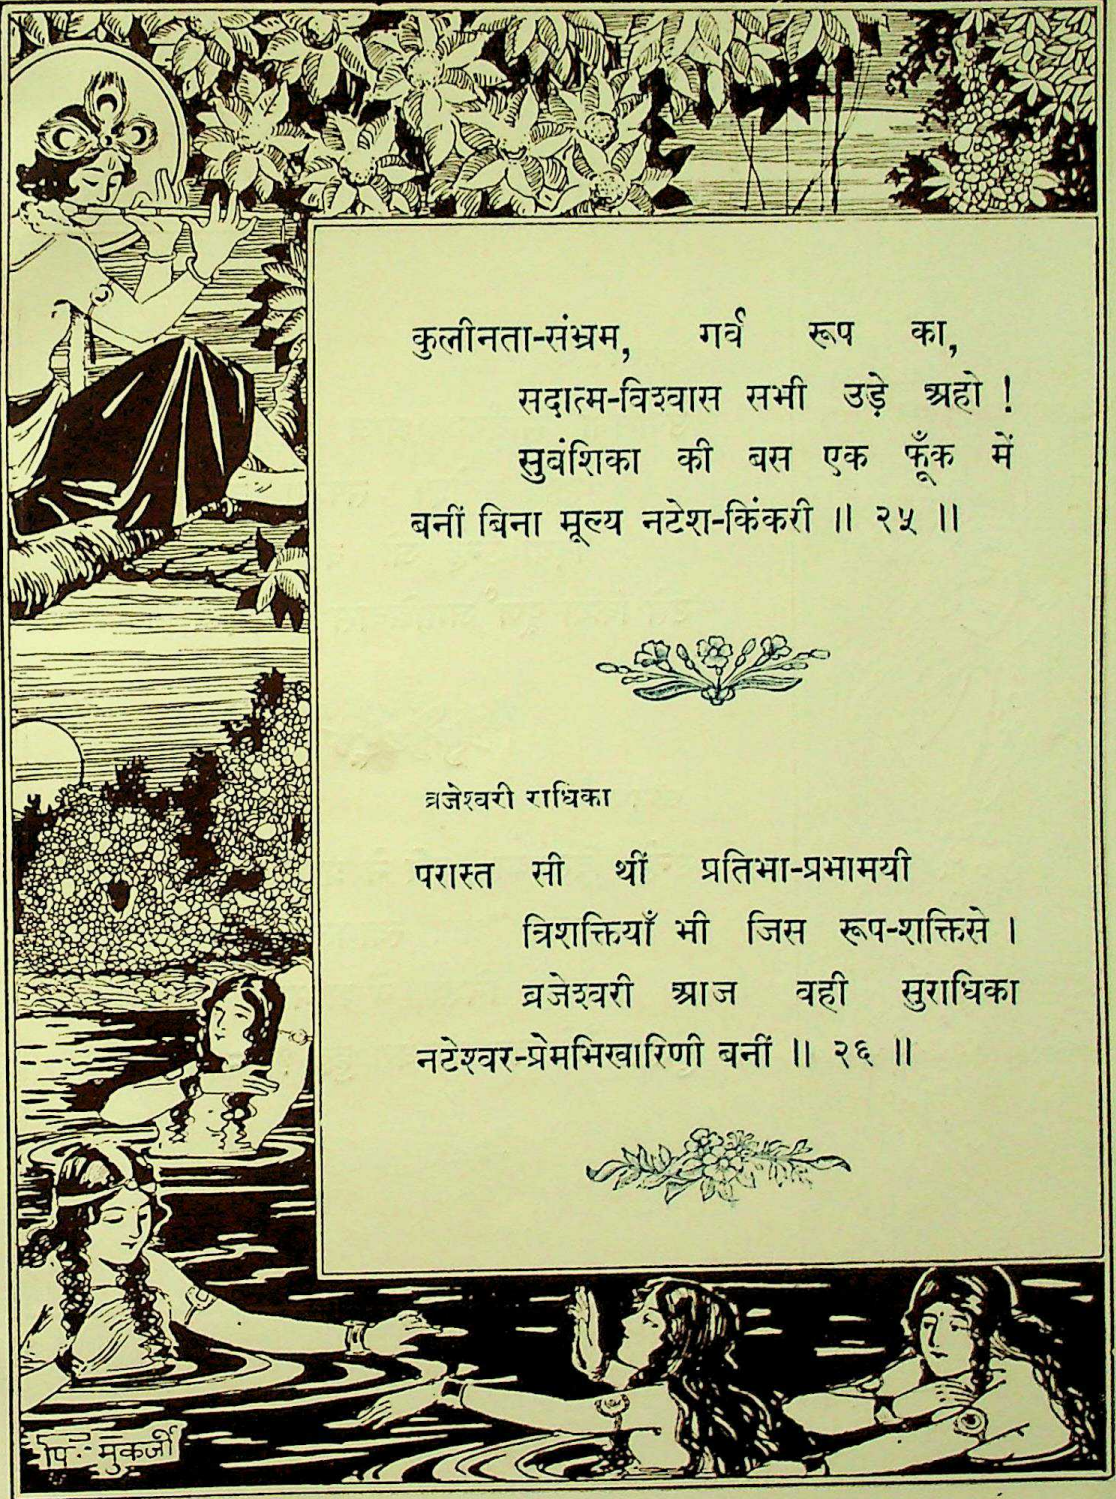 कुलीनता-संभ्रम, गर्व रूप का,
सदात्म-विश्वास सभी उड़े अहो !
सुबंशिका की बस एक फूँक में
बनीं बिना मूल्य नटेश-किंकरी ॥ २५ ॥
व्रजेश्वरी राधिका
परास्त सी थीं प्रतिभा-प्रभामयी
त्रिशक्तियाँ भी जिस रूप-शक्तिसे ।
व्रजेश्वरी आज वही सुराधिका
नटेश्वर-प्रेमभिखारिणी बनीं ॥ २६ ॥
पि. मुकर्जी